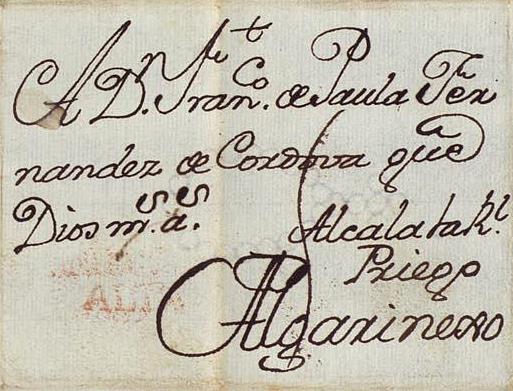 A Dn. Francō. de Paula Fer
nandez de Cordova que
Dios ms. as.
Alcala la Rl.
Priego
Algarinexo
ALI